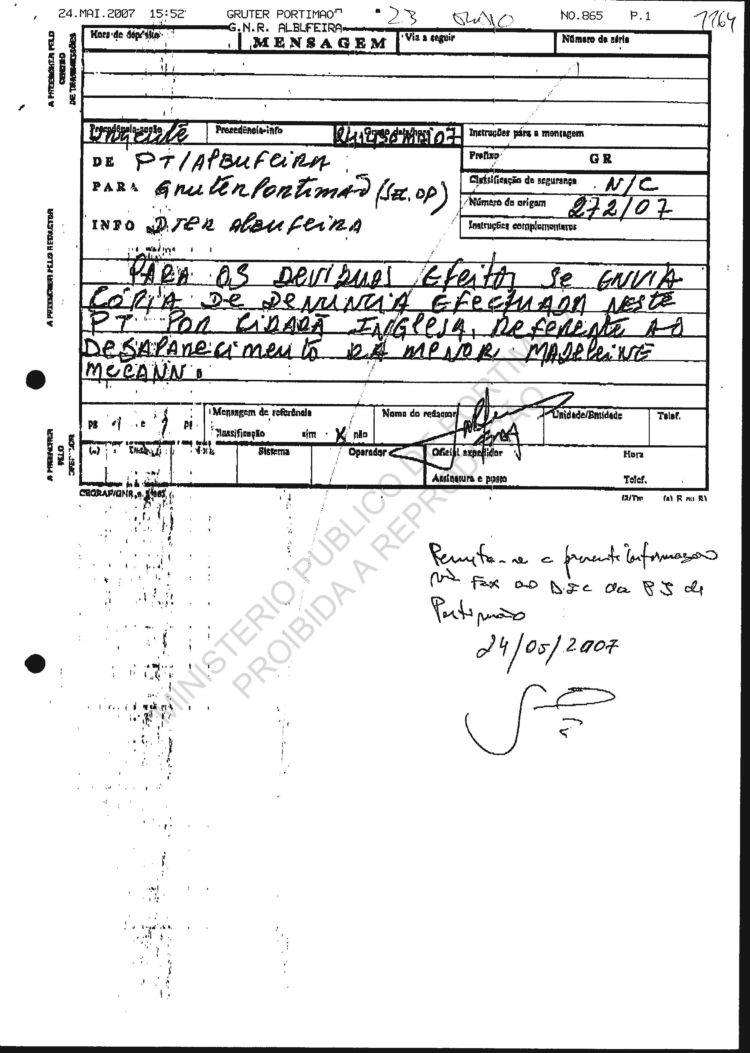 24.MAI.2007 15:52 GRUTER PORTIMAO NO.865 P.1
23
1164
G.N.R. ALBUFEIRA
Hora de depósito
MENSAGEM
Via a seguir
Número de série
A PREENCHER PELO
CENTRO
DE TRANSMISSÕES
Precedência-acção
Urgente
Precedência-info
Grupo data/hora
Instruções para a montagem
DE PT/ALBUFEIRA
Prefixo GR
PARA GRUTER PORTIMÃO (SEC. OP)
Classificação de segurança N/C
Número de origem 272/07
INFO DTER ALBUFEIRA
Instruções complementares
A PREENCHER PELO REDACTOR
PARA OS DEVIDUOS EFEITOS SE ENVIA
CÓPIA DE DENUNCIA EFECTUADA NESTE
PT POR CIDADÃ INGLESA, REFERENTE AO
DESAPARECIMENTO DA MENOR MADELEINE
MCCANN.
pg 1 e 1 pg
Mensagem de referência
Nome do redactor
Unidade/Entidade
Telef.
Classificação sim X não
A PREENCHER
PELO
OPERADOR
Sistema
Operador
Oficial expedidor
Hora
Assinatura e posto
Telef.
CEGRAF/GNR
(a) R ou E)
Remeta-se a presente informação
via Fax ao DIC da PJ de
Portimão
24/05/2007
MINISTERIO PUBLICO DE PORTIMAO
PROIBIDA A REPRODUÇÃO